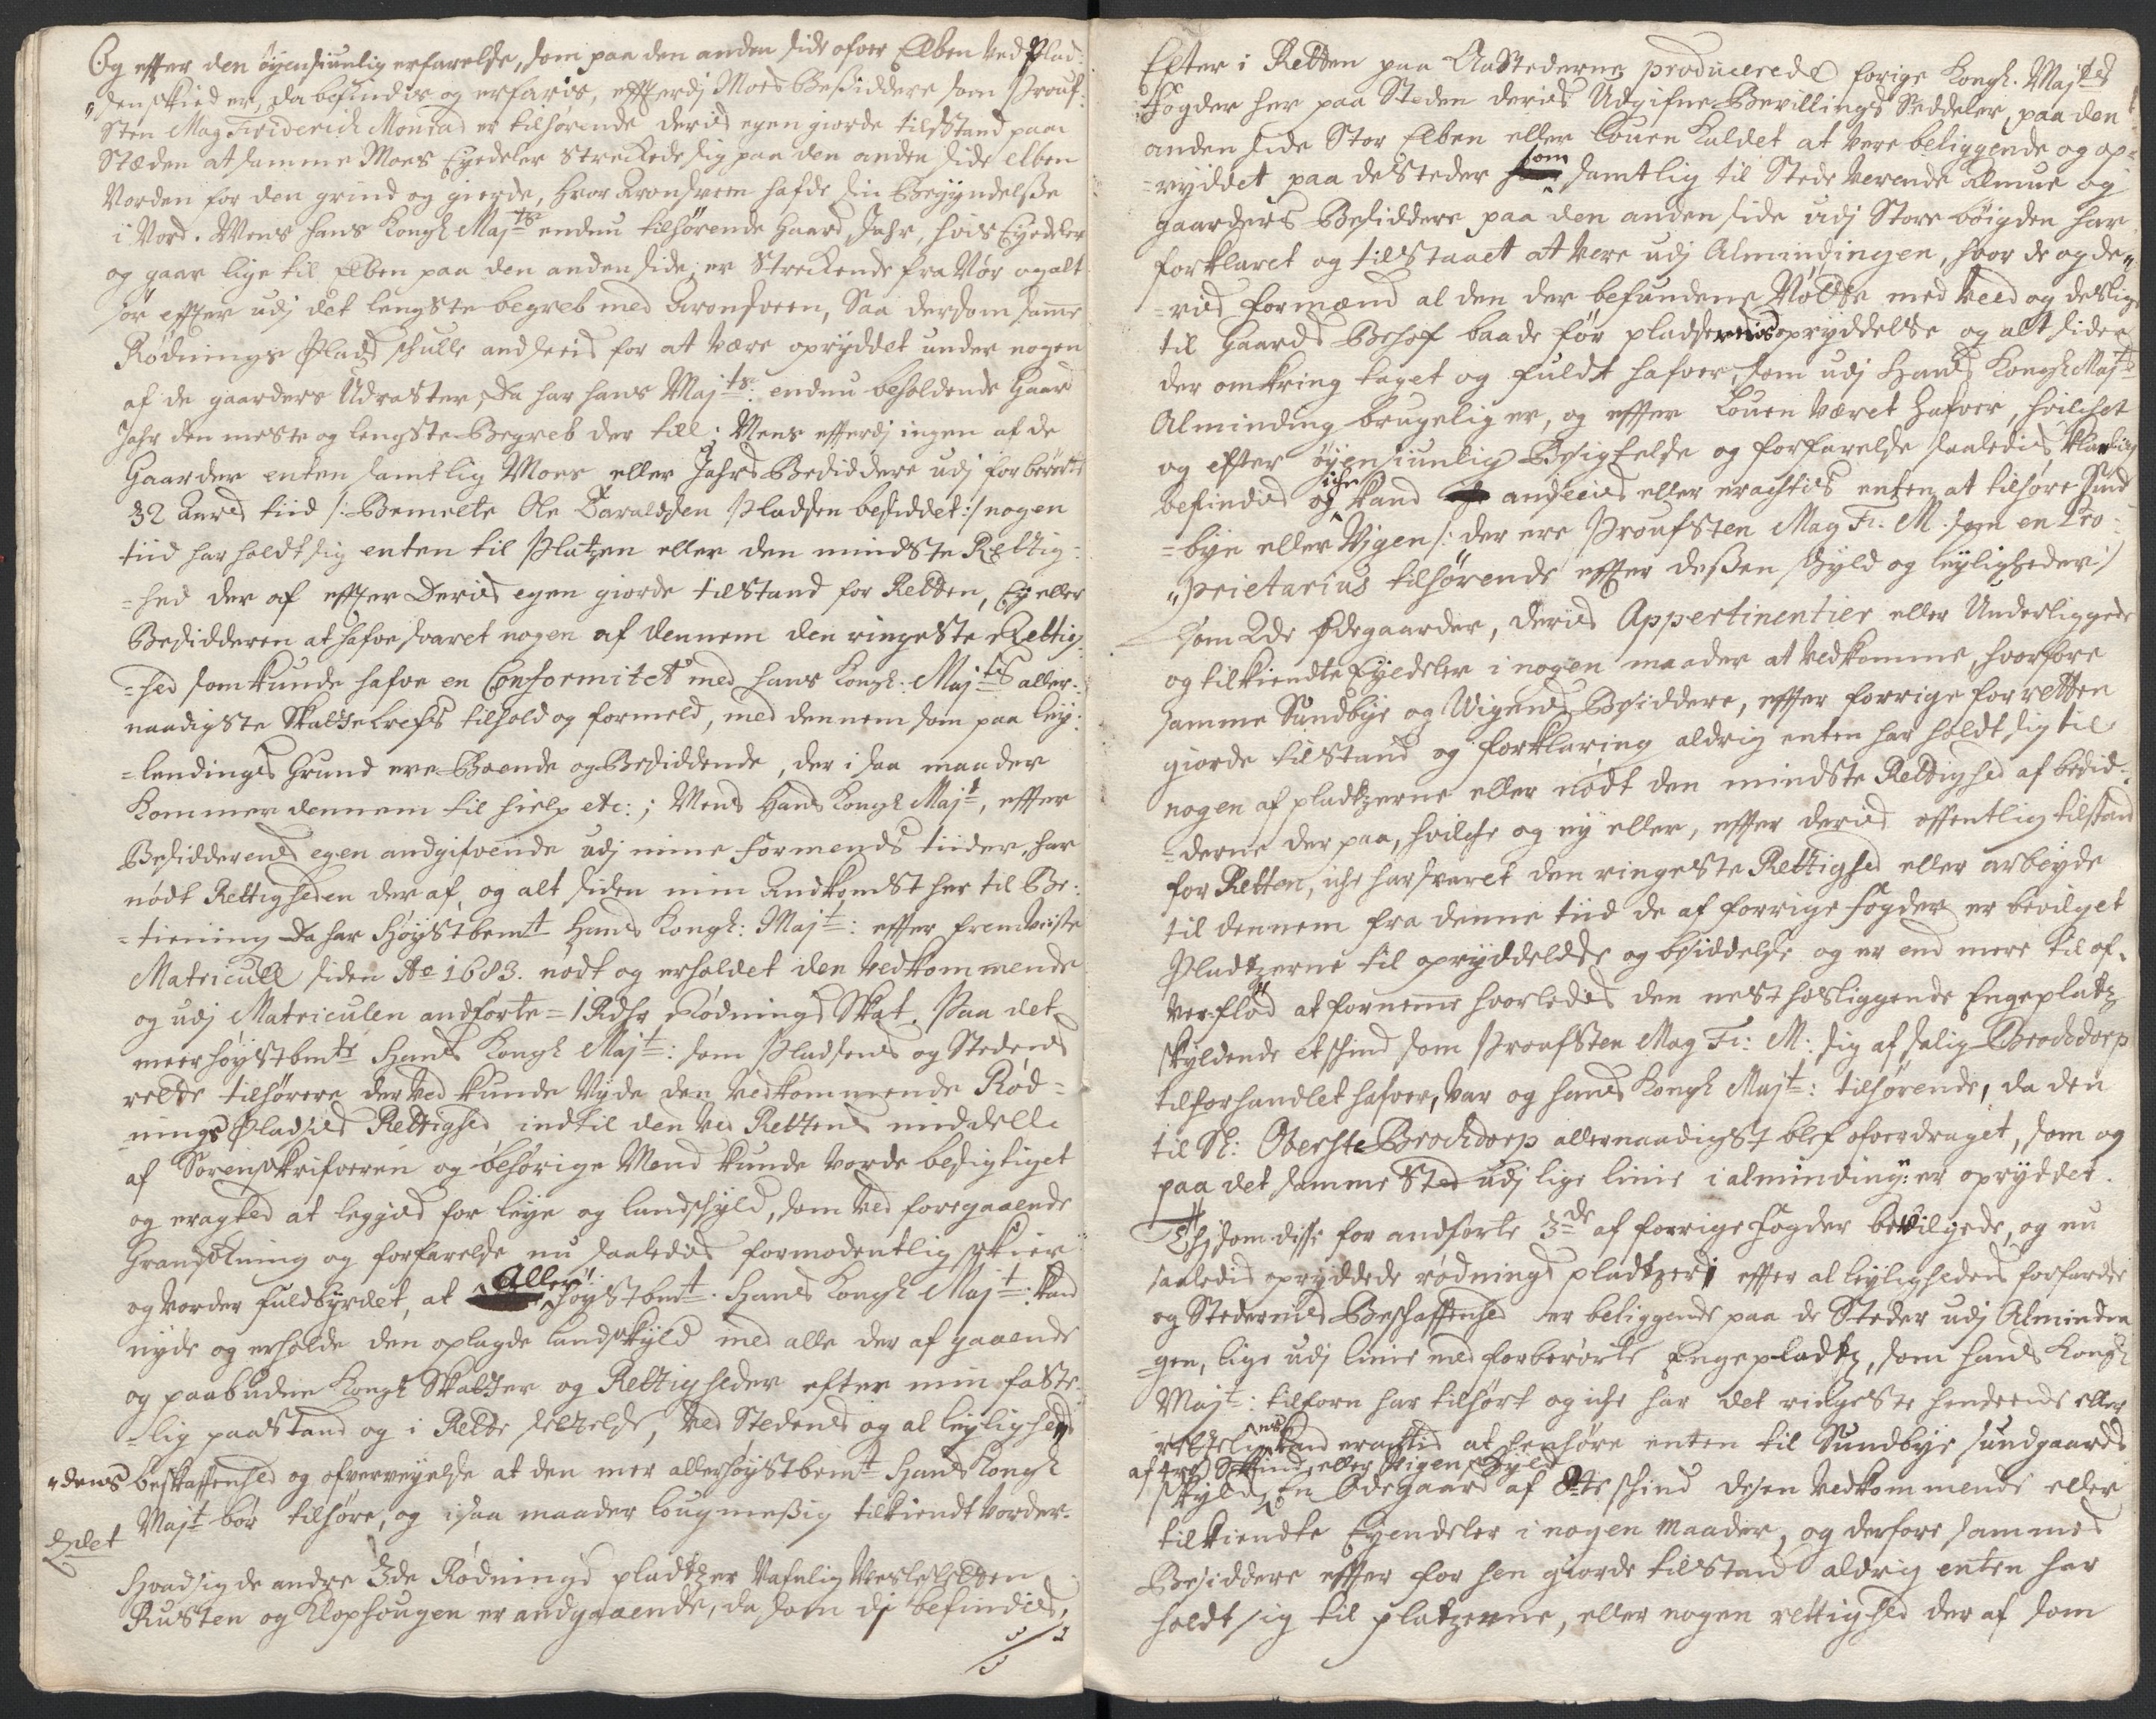 Og effter den øyensiunlig erfarelse, som paa den anden side ofver Elben ved Plad:
"sen skied er, da befindis og erfaris, effterdj Moes Besiddere som Prouf:
sten Mag Friderich Monrad er tilhørende deris egen giorde tilstand paa
Stæden at samme Moes Eyedeler streckede sig paa den anden side elben
Norden for den grind og gierde, hvor Aronsveen hafde sin Begyndelsse
i Nord. Mens hans Kongl Majts endnu tilhørende Gaard Jahr, hvis Eyedeler
og gaar lige til Elben paa den anden side, er Streckende fra Nør og alt
sør effter udj det lengste begreb med Aronsveen, Saa dersom samme
Rødnings Plads schulle andseeis for at være opryddet under nogen
af de gaarders Udraster, Da har hans Majts: endnu beholdende Gaard
Jahr den meste og lengste Begreb der till; Mens efterdj ingen af de
Gaarder enten samtlig Moes eller Jahrs Besiddere udj forberørte
32 Aars tiid /: Bemelte Ole Haraldsen Pladsen besiddet :/ nogen
tiid har holdt sig enten til Platzen eller den mindste Rettig:
=hed der af effter Deris egen giorde tilstand for Retten, Ey eller
Besidderen at hafve svaret nogen af dennem den ringeste Rettig:
=hed som kunde hafve en Conformitet med hans Kongl: Majts aller:
naadigste Skatte brefs tilhold og formeld, med dennem som paa ley:
=lendings Grund ere Boende og Besiddende, der i saa maader
Kommer dennem til hielp etc:; Mens Hans Kongl Majt, effter
Besidderens egen andgifvende udj mine Formends tiider, har
nødt Rettigheden der af, og alt siden min Andkomst her til Be:
=tiening Da har Høystbemt Hans Kongl: Majt: effter fremviiste
Matricull siden Ao 1683. nødt og erholdet den vedkommende
og udj Matriculen andførte = 1 Rdlr Rødnings Skat. Paa det
meer høystbemte Hans Kongl Majt: som Pladsens og Stedens
rette tilhørere der ved kunde Nyde den vedkommende Rød=
nings Pladsis Rettighed indtil den ved Rettens middelle
af Sorenskrifveren og behørige Mend kunde vorde besigtiget
og eragted at leggis for leye og landschyld, som ved foregaaende
Gransckning og forfarelse nu saaledis formodentlig skier
og vorder fuldbyrdet, at Aller" høystbmt Hans Kongl Majt: kand
nyde og erholde den oplagde landskyld med alle der af gaaende
og paabudne Kongl Skatter og Rettigheder efter min faste=
=lig paastand og i Rette settelse, ved Stedens og al leylighed
"=dens beskaffenhed og ofverveyelse at den mer allerhøystbemt Hans Kongl
Majt bør tilhøre, og i saa maader lougmeßig tilkiendt vorder.
Hvad sig de andre 3de Rødnings pladtzer Nafnlig Veslesletten
Rusten og Klophougen er andgaaende, da som di befindis,
Efter i Retten paa AaStederne producerede forige Kongl. Majts
Fogder her paa Steden deris Udgifne Bevillings Seddeler, paa den
anden side Stor Elben eller Louen Kaldet at vere beliggende og op=
=ryddet paa de steder som samtlig til Stede verende Almue og
gaarders Besiddere paa den anden side udj Store bøigden har
forklaret og tilstaaet at vere udj Almindingen, hvor de og de"
=ris formænd al den der befundene Nøtte med Veed og deslige
til Gaards Behof baade før pladsernis opryddelse og alt siden
der omkring taget og fuldt hafver, som udj Hans Kongl Majts
Alminding brugelig er, og effter Louen været hafver, hvilchet
og efter øyensiunlig Besigtelse og forfarelse saaledis klarlig
befindis og iche kand andseeis eller eragtes enten at tilhøre Sund
=bye eller Vigen /: der ere Proufsten Mag Fr. M. som en Pro=
"prietarius tilhørende effter deßen skyld og leyligheder :/
som 2de Ødegaarder, deris Appertinentier eller Underliggede
og tilkiendte Eyedeler i nogen maader at vedkomme, hvorfore
samme Sundbye og Wigens Besiddere, effter forrige for retten
giorde tilstand og forklaring aldrig enten har holdt sig til
nogen af pladtzerne eller nødt den mindste Rettighed af besid:
=derne der paa, hvilche og ey eller, effter deris offentlig tilstand
for Retten, iche har svaret den ringeste Rettighed eller arbeyde
til dennem fra denne tiid de af forrige Fogder er bevilget
Pladtzerne til opryddelse og besiddelse og er end mere til of=
verflød at fornemme hvorledis den nest hosliggende Engeplatz
skyldende et schind som Proufsten Mag Fr: M: sig af salig Brochdorp
tilforhandlet hafver, var og hans Kongl Majt: tilhørende, da den
til Sl: Oberste Brochdorp allernaadigst blef ofverdraget, som og
paa det samme Sted udj lige linie i alminding: er opryddet.
Thj som disse for andførte 3de af forrige Fogder bevilgede, og nu
saaledis opryddede rødnings pladtzer effter al leylighedens forfarelse
og Stedernes Beschaffenhed er beliggende paa de Steder udj Alminden
=gen, lige udj linie med forberørte Engepladtz, som hans Kongl
Majt: tilforn har tilhørt og iche har det ringeste henseende eller
rettelig nu kand eragtis at henhøre enten til Sundbye sundgaards
af tre Schind, eller Vigen schyld
skyld En Ødegaard af Otte schind desen vedkommende eller
tilkiendte Eyendeler i nogen Maader, og derfore sammes
Besiddere effter for hen giorde tilstand aldrig enten har
holdt sig til platzerne, eller nogen rettighed der af som